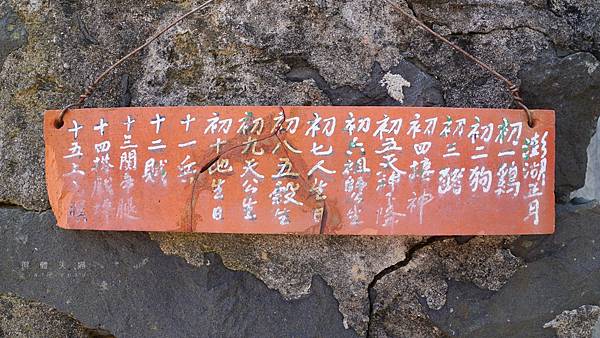 澎湖正月
初一鷄
初二狗
初三豬
初四接神
初五天神降
初六祖師公生
初七人生日
初八五殼生
初九天公生
初十地生日
十一岳
十二賊
十三關爭腿
十四搭戲棚
十五上